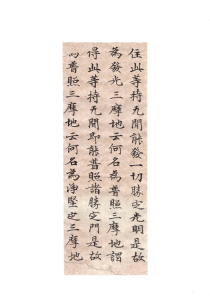 住此等持无間能發一切勝定光明是故
為發光三摩地云何名為普照三摩地謂
得此等持无間即能普照諸勝定門是故
普照三摩地云何名為淨堅定三摩地